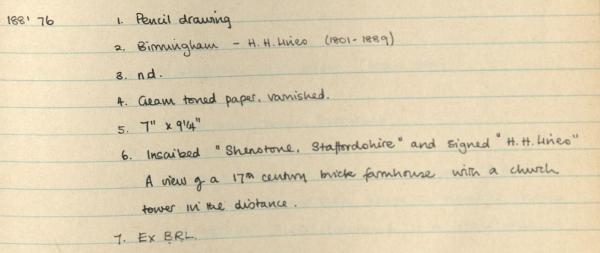 188' 76 1. Pencil drawing
2. Birmingham - H.H. Lines (1801-1889)
3. n.d.
4. Cream toned paper, varnished.
5. 7" x 9¼"
6. Inscribed "Shenstone, Staffordshire" and signed "H.H. Lines"
A view of a 17th century brick farmhouse with a church
tower in the distance.
7. Ex BRL.